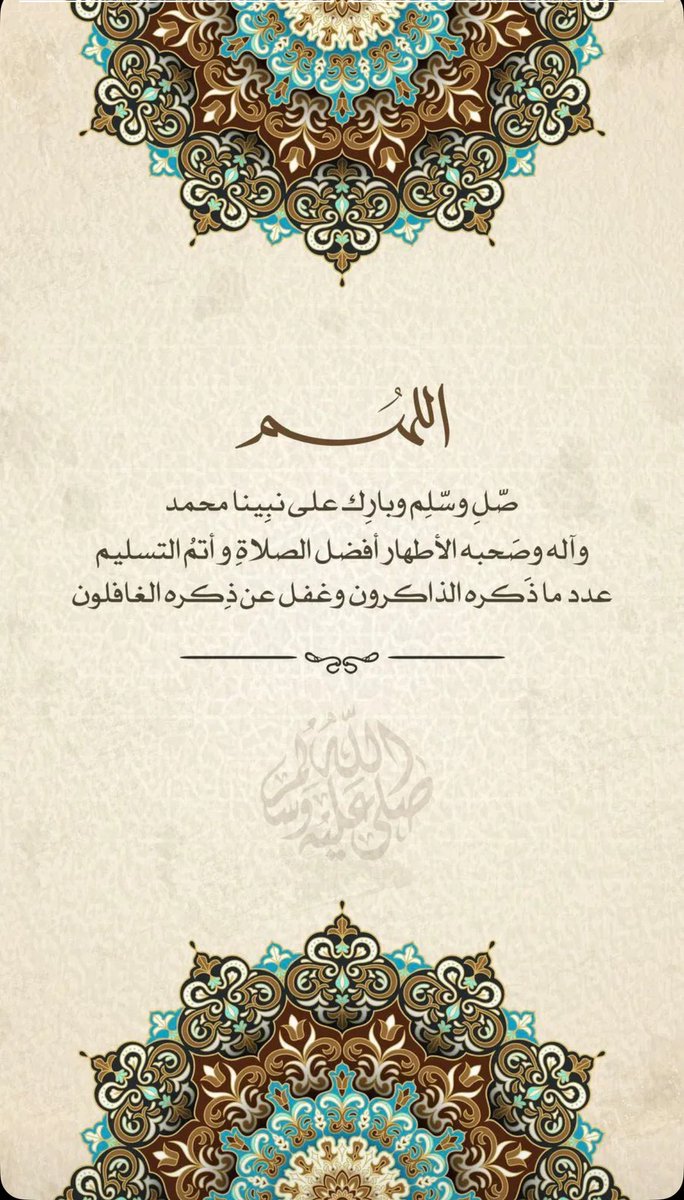 اللهُم
صّلِ وسّلِم وبارِك على نبِينا محمد
وآله وصَحبه الأطهار أفضل الصلاةِ و أتمُ التسليم
عدد ما ذَكره الذاكرون وغفل عن ذِكره الغافلون
صلى الله عليه وسلم